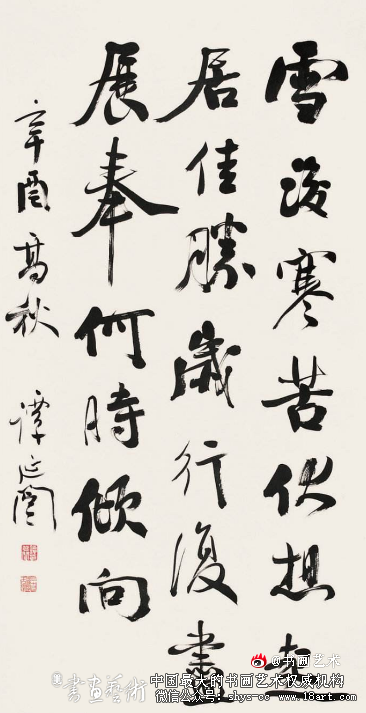 雪後寒苦伏想起
居佳勝歲行復盡
展奉何時傾向
辛酉高秋 譚延闓
@书画艺术
書畫藝術
中国最大的书画艺术权威机构
微信公众号: shys-cc